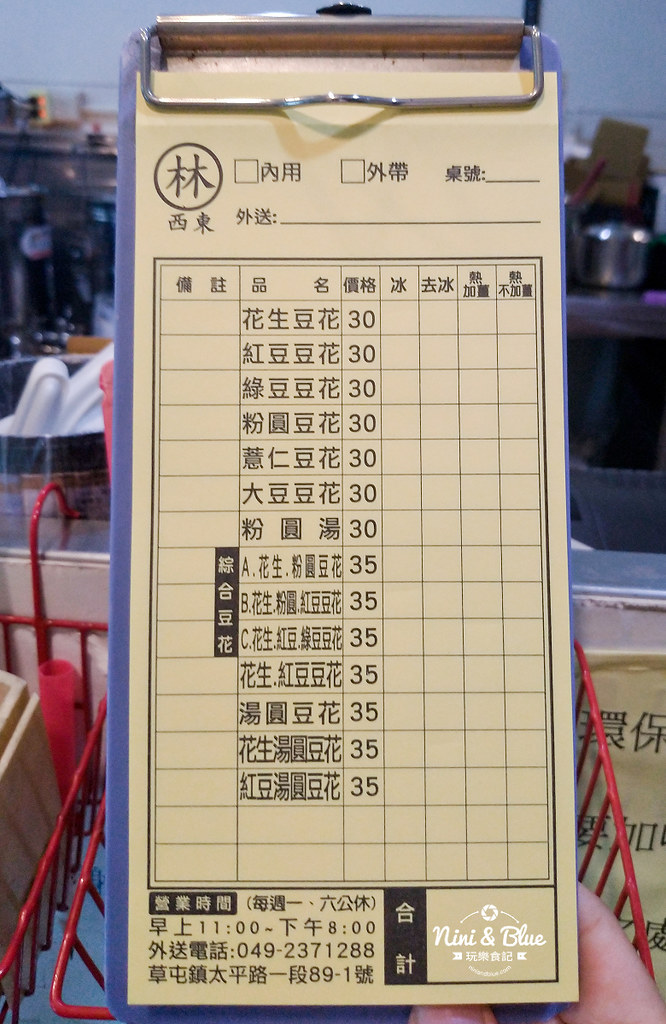 林
西東
內用 外帶 桌號:
外送:
備註 品名 價格 冰 去冰 熱加薑 熱不加薑
花生豆花 30
紅豆豆花 30
綠豆豆花 30
粉圓豆花 30
薏仁豆花 30
大豆豆花 30
粉圓湯 30
綜合豆花
A.花生.粉圓豆花 35
B.花生.粉圓.紅豆豆花 35
C.花生.紅豆.綠豆豆花 35
花生.紅豆豆花 35
湯圓豆花 35
花生湯圓豆花 35
紅豆湯圓豆花 35
營業時間 (每週一、六公休)
早上11:00~下午8:00
外送電話:049-2371288
草屯鎮太平路一段89-1號
合計
Nini & Blue
玩樂食記
環保
要加